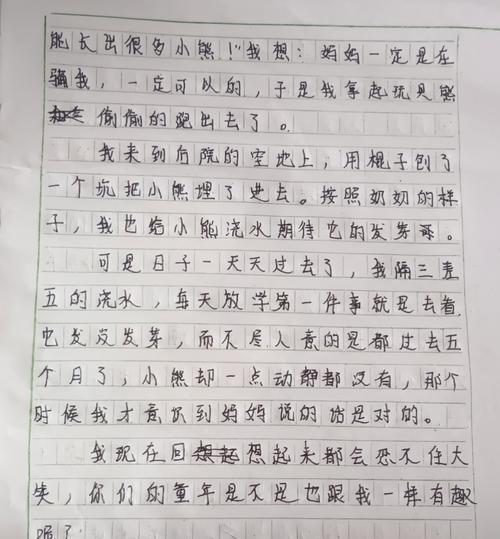 能长出很多小熊！"我想：妈妈一定是在
骗我，一定可以的，于是我拿起玩具熊
偷偷的跑出去了。
我来到后院的空地上，用棍子刨了
一个坑把小熊埋了进去。按照奶奶的样
子，我也给小熊浇水期待它的发芽哥。
可是日子一天天过去了，我隔三差
五的浇水，每天放学第一件事就是去看
它发没发芽，而不尽人意的是都过去五
个月了，小熊却一点动静都没有，那个
时候我才意识到妈妈说的话是对的。
我现在回想起来都会忍不住大
笑，你们的童年是不是也跟我一样有趣
呢？